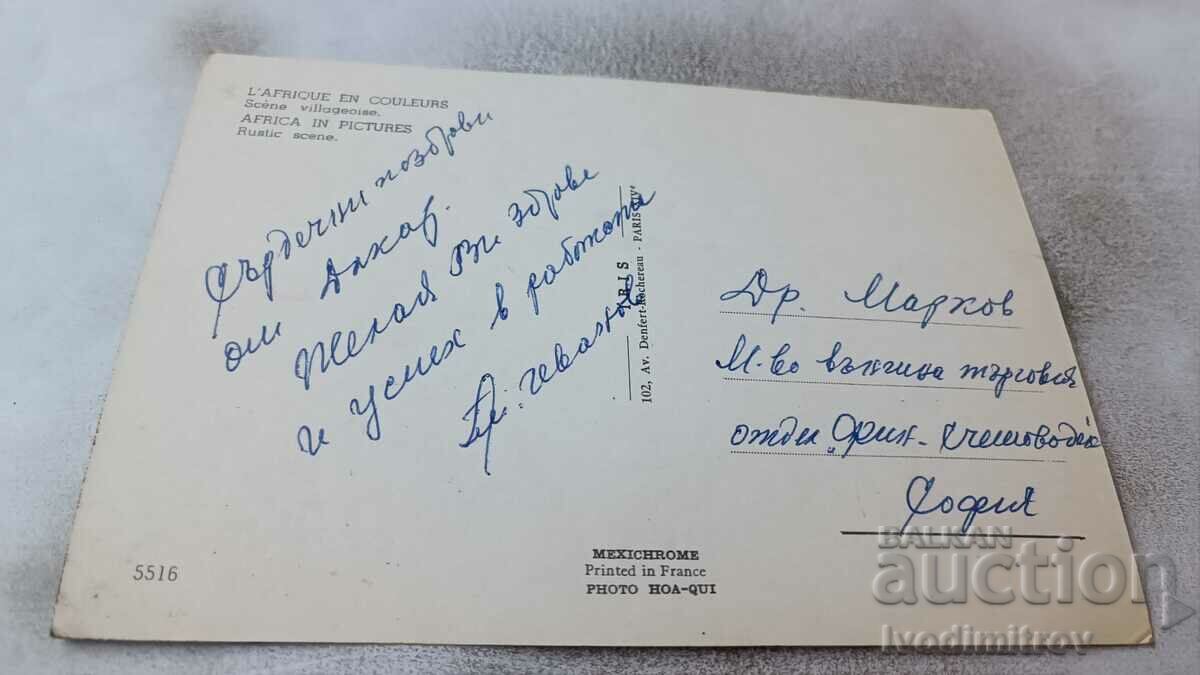 L'AFRIQUE EN COULEURS
Scène villageoise.
AFRICA IN PICTURES
Rustic scene.
Сърдечни поздрави
от Дакар.
Желая Ви здраве
и успех в работата
IRIS
102, Av. Denfert-Rochereau - PARIS-XIVe
Др. Марков
М-во външна търговия
отдел "Фин.-счетоводен
София
5516
MEXICHROME
Printed in France
PHOTO HOA-QUI
BALKAN
auction
Ivodimitrov